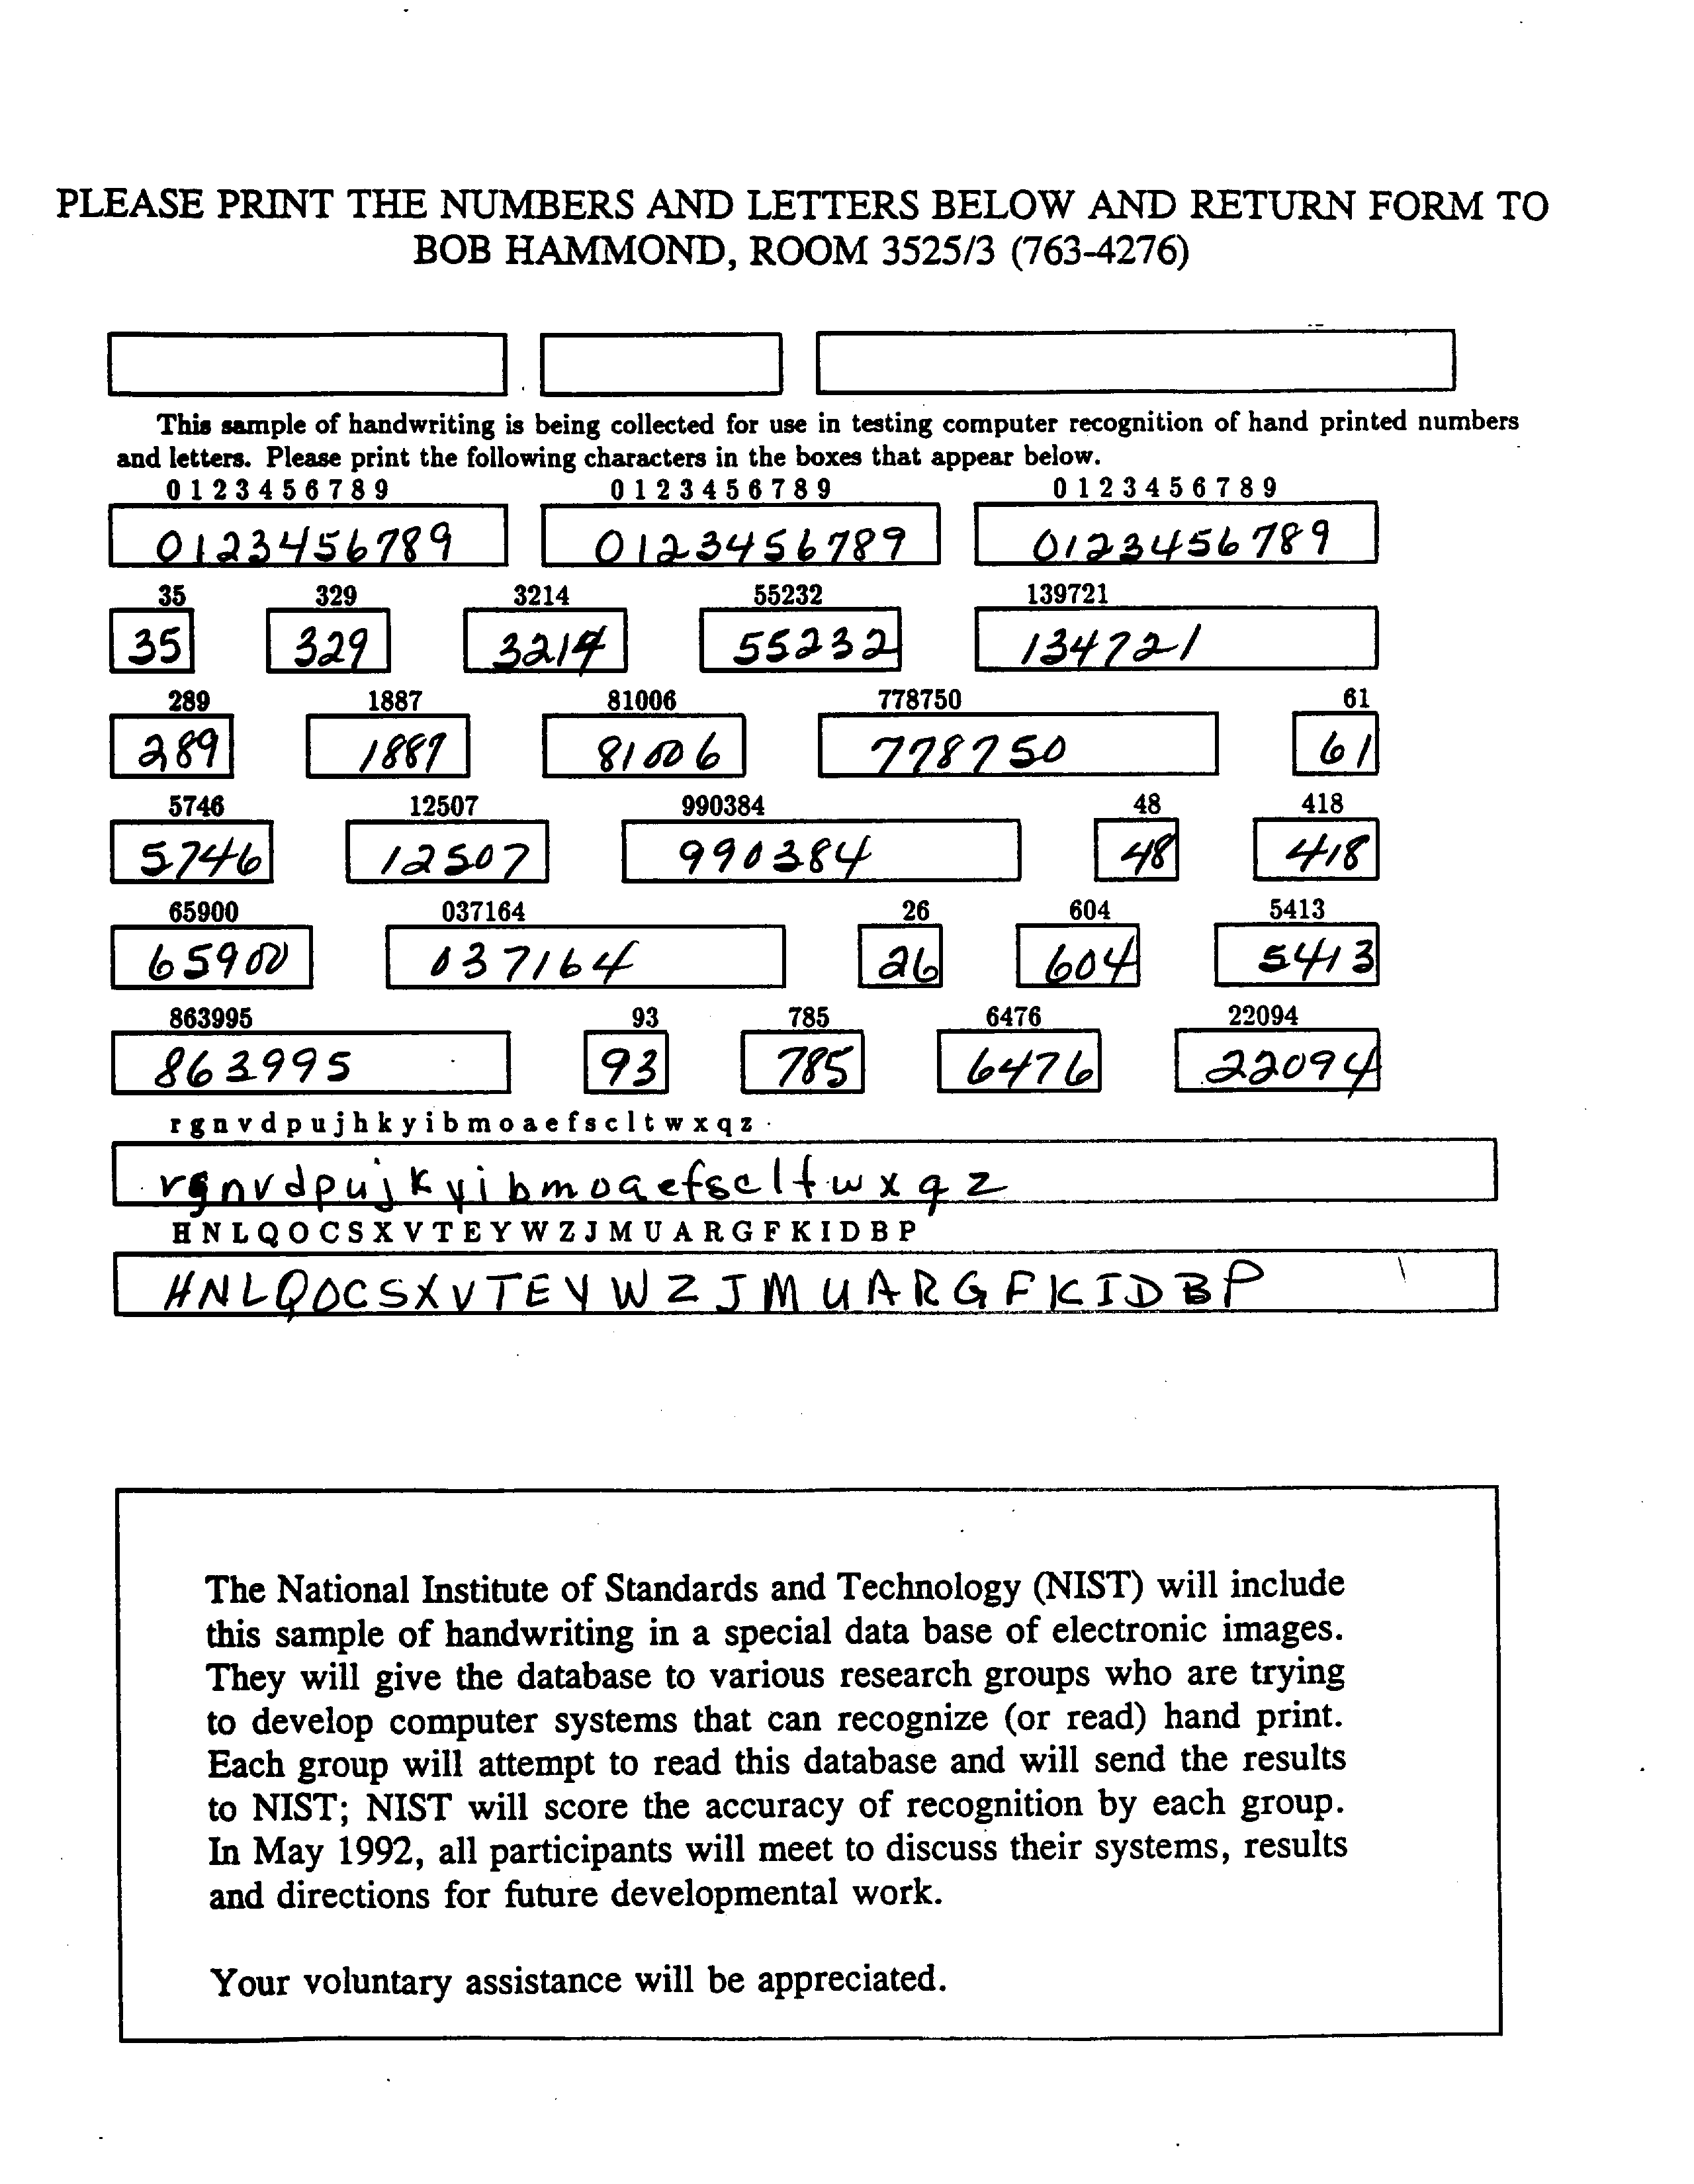 PLEASE PRINT THE NUMBERS AND LETTERS BELOW AND RETURN FORM TO
BOB HAMMOND, ROOM 3525/3 (763-4276)
This sample of handwriting is being collected for use in testing computer recognition of hand printed numbers
and letters. Please print the following characters in the boxes that appear below.
0 1 2 3 4 5 6 7 8 9 0 1 2 3 4 5 6 7 8 9 0 1 2 3 4 5 6 7 8 9
0123456789 0123456789 0123456789
35 329 3214 55232 139721
35 329 3214 55232 134721
289 1887 81006 778750 61
289 1887 81006 778750 61
5746 12507 990384 48 418
5746 12507 990384 48 418
65900 037164 26 604 5413
65900 037164 26 604 5413
863995 93 785 6476 22094
863995 93 785 6476 22094
r g n v d p u j h k y i b m o a e f s c l t w x q z
rgnvdpujkyibmoaefscltwxqz
H N L Q O C S X V T E Y W Z J M U A R G F K I D B P
HNLQOCSXVTEYWZJMUARGFKIDBP
The National Institute of Standards and Technology (NIST) will include
this sample of handwriting in a special data base of electronic images.
They will give the database to various research groups who are trying
to develop computer systems that can recognize (or read) hand print.
Each group will attempt to read this database and will send the results
to NIST; NIST will score the accuracy of recognition by each group.
In May 1992, all participants will meet to discuss their systems, results
and directions for future developmental work.
Your voluntary assistance will be appreciated.